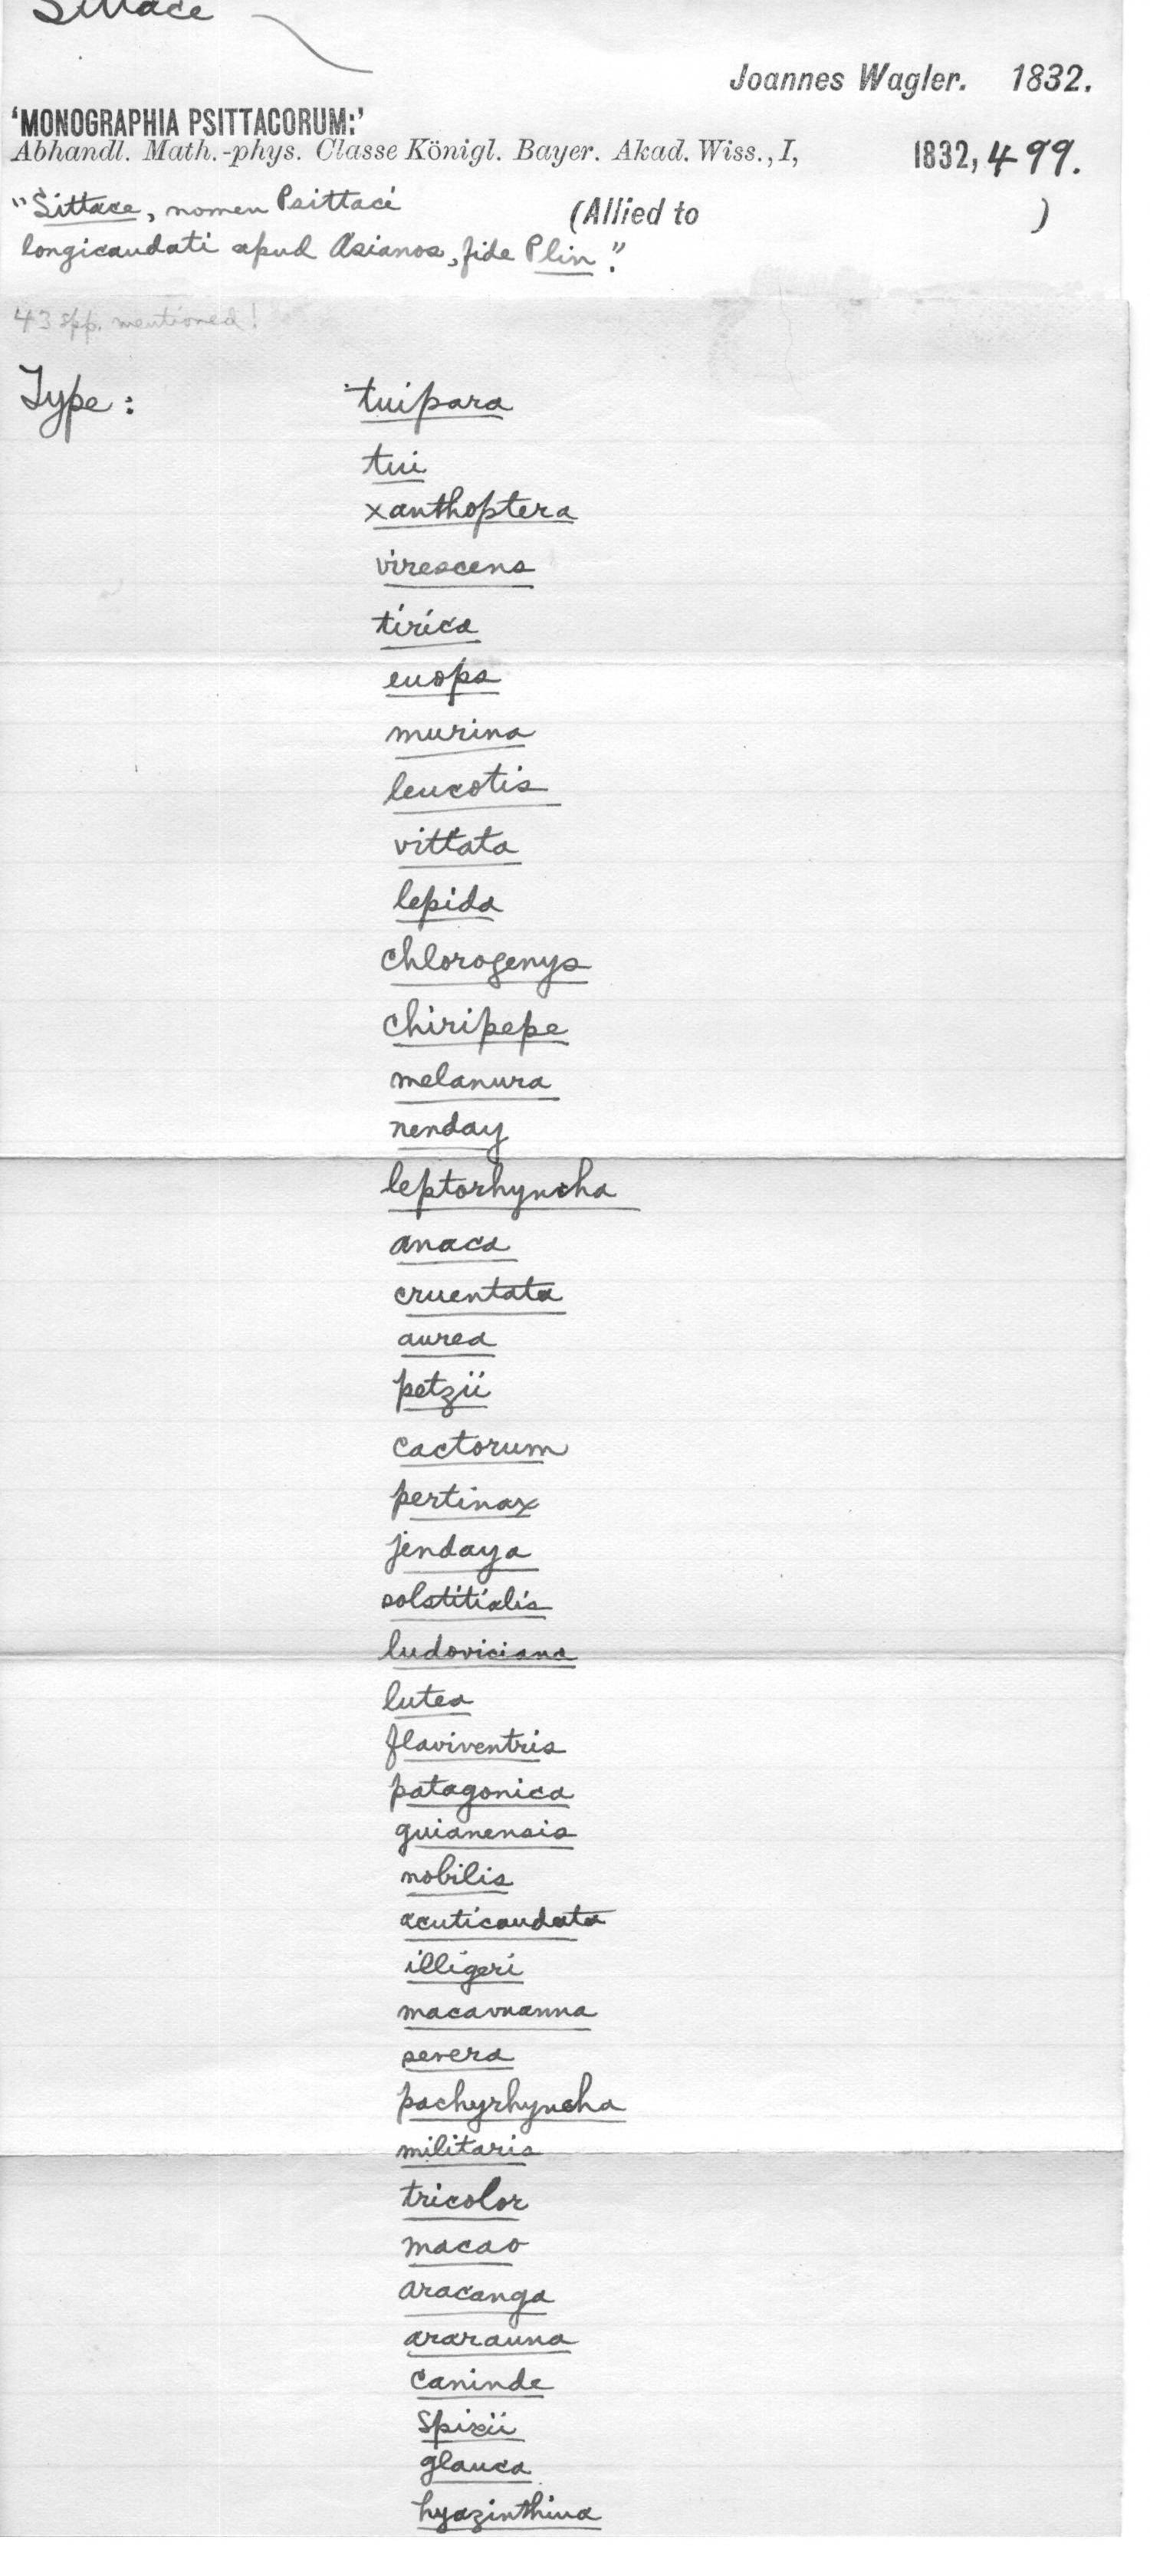 Sittace
Joannes Wagler. 1832.
'MONOGRAPHIA PSITTACORUM:'
Abhandl. Math.-phys. Classe Königl. Bayer. Akad. Wiss., I, 1832, 499.
"Sittace, nomen Psittaci (Allied to )
longicaudati apud Asianos, fide Plin."
43 spp. mentioned!
Type: tuipara
tui
xanthoptera
virescens
tirica
euops
murina
leucotis
vittata
lepida
chlorogenys
chiripepe
melanura
nenday
leptorhyncha
anaca
cruentata
aurea
petzii
cactorum
pertinax
jendaya
solstitialis
ludoviciana
lutea
flaviventris
patagonica
guianensis
nobilis
acuticaudata
illigeri
macavuanna
severa
pachyrhyncha
militaris
tricolor
macao
aracanga
ararauna
caninde
spixii
glauca
hyazinthina